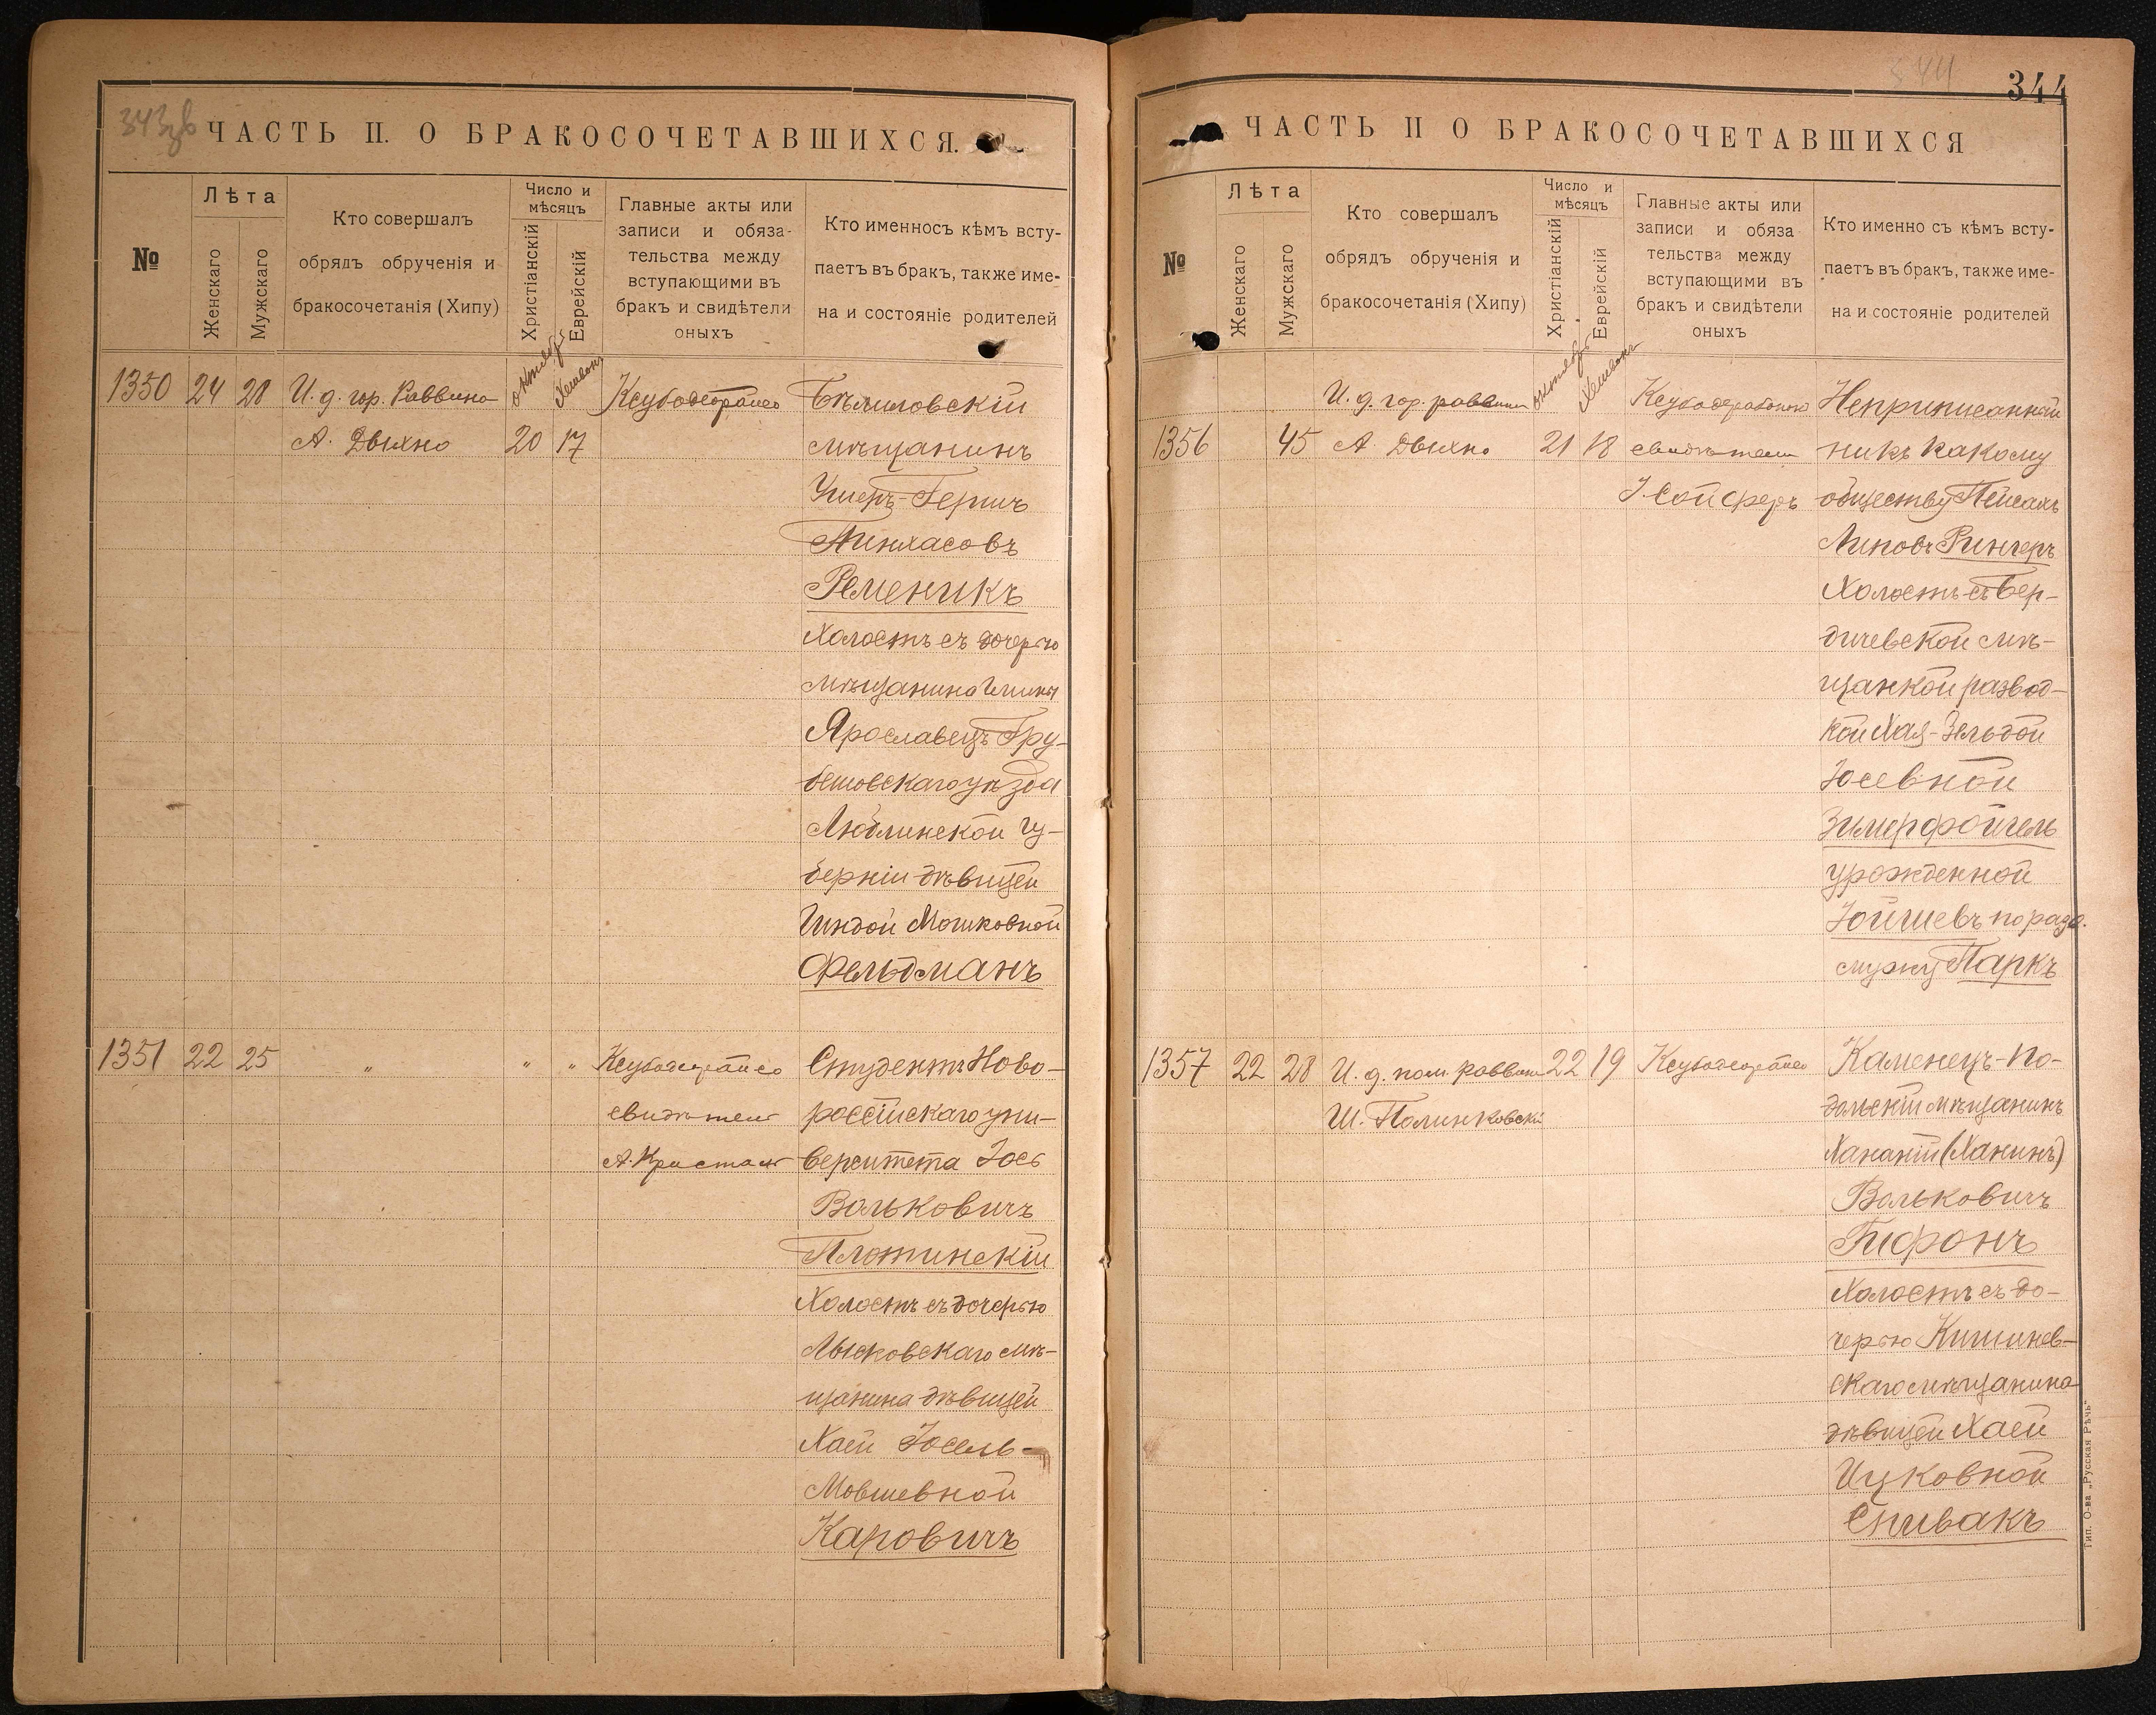 343зв
ЧАСТЬ П. О БРАКОСОЧЕТАВШИХСЯ.
№
Лѣта
Женскаго
Мужскаго
Кто совершалъ
обрядъ обрученія и
бракосочетанія (Хипу)
Число и
мѣсяцъ
Христіанскій
Еврейскій
Главные акты или
записи и обяза-
тельства между
вступающими въ
бракъ и свидѣтели
оныхъ
Кто именносъ кѣмъ всту-
паетъ въ бракъ, также име-
на и состояніе родителей
1350 24 28 И. д. гор. Раввина
А. Двихно 20 17
Бѣлиловскій
мѣщанинъ
Ушеръ-Гершъ
Пинхасовъ
Ременикъ
Холостъ съ дочерью
мѣщанина
Ярославецъ Гру-
бешовскаго уѣзда
Люблинской гу-
берніи дѣвицей
Гиндой Мошковной
Фельдманъ
1351 22 25 " " "
свидѣтель
А. Кристалъ
Студентъ Ново-
россійскаго уни-
верситета Іось
Вольковичъ
Плотинскій
Холостъ съ дочерью
Лысковскаго мѣ-
щанина дѣвицей
Хаей Іосель-
Мовшевной
Каповичъ
344
344
ЧАСТЬ II О БРАКОСОЧЕТАВШИХСЯ
№
Лѣта
Женскаго
Мужскаго
Кто совершалъ
обрядъ обрученія и
бракосочетанія (Хипу)
Число и
мѣсяцъ
Христіанскій
Еврейскій
Главные акты или
записи и обяза
тельства между
вступающими въ
бракъ и свидѣтели
оныхъ
Кто именно съ кѣмъ всту-
паетъ въ бракъ, также име-
на и состояніе родителей
И. д. гор. раввина
1356 45 А. Двихно 21 18
свидѣтель
І. Сойферъ
Неприписанный
ни къ какому
обществу Пейсахъ
Липовъ Рингеръ
Холостъ съ Бер-
дичевской мѣ-
щанкой развод-
кой Хая-Зельдой
Іосевной
Зимерфойгель
урожденной
Іойшевъ по разв.
мужу Паркъ
1357 22 28 И. д. пом. раввина 22 19
Ш. Полинковскій
Каменецъ-По-
дольскій мѣщанинъ
Хананій (Ханинъ)
Вольковичъ
Гифонъ
Холостъ съ до-
черью Кишинев-
скаго мѣщанина
дѣвицей Хаей
Ицковной
Спивакъ
Тип. О-ва „Русская Рѣчь"